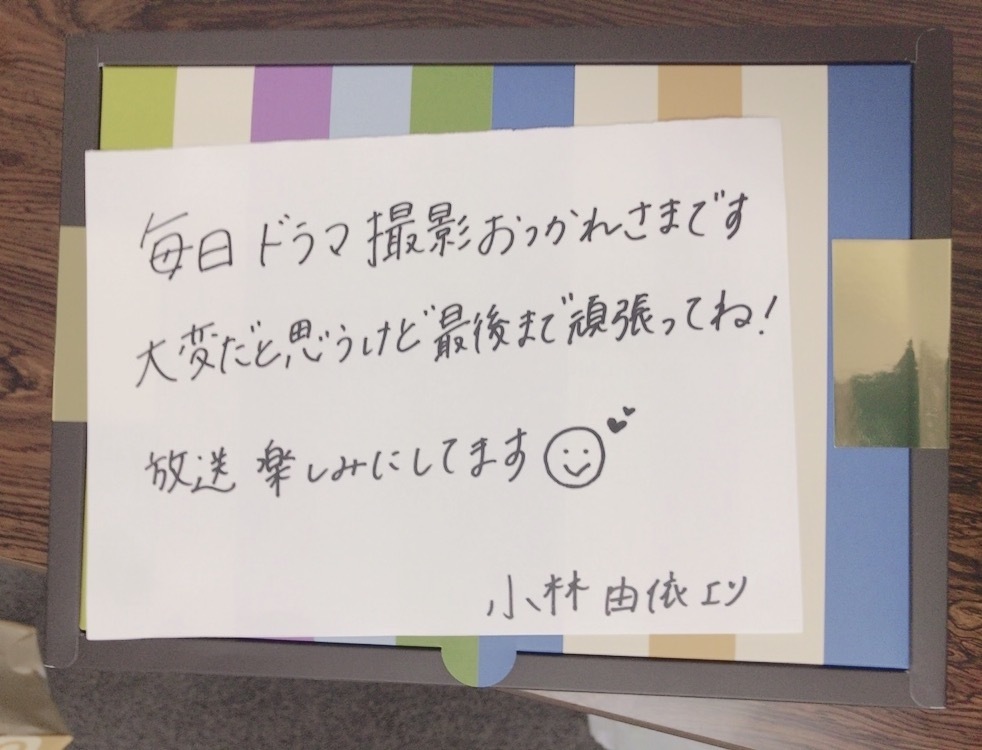 毎日ドラマ撮影おつかれさまです
大変だと思うけど最後まで頑張ってね!
放送 楽しみにしてます
小林 由依より